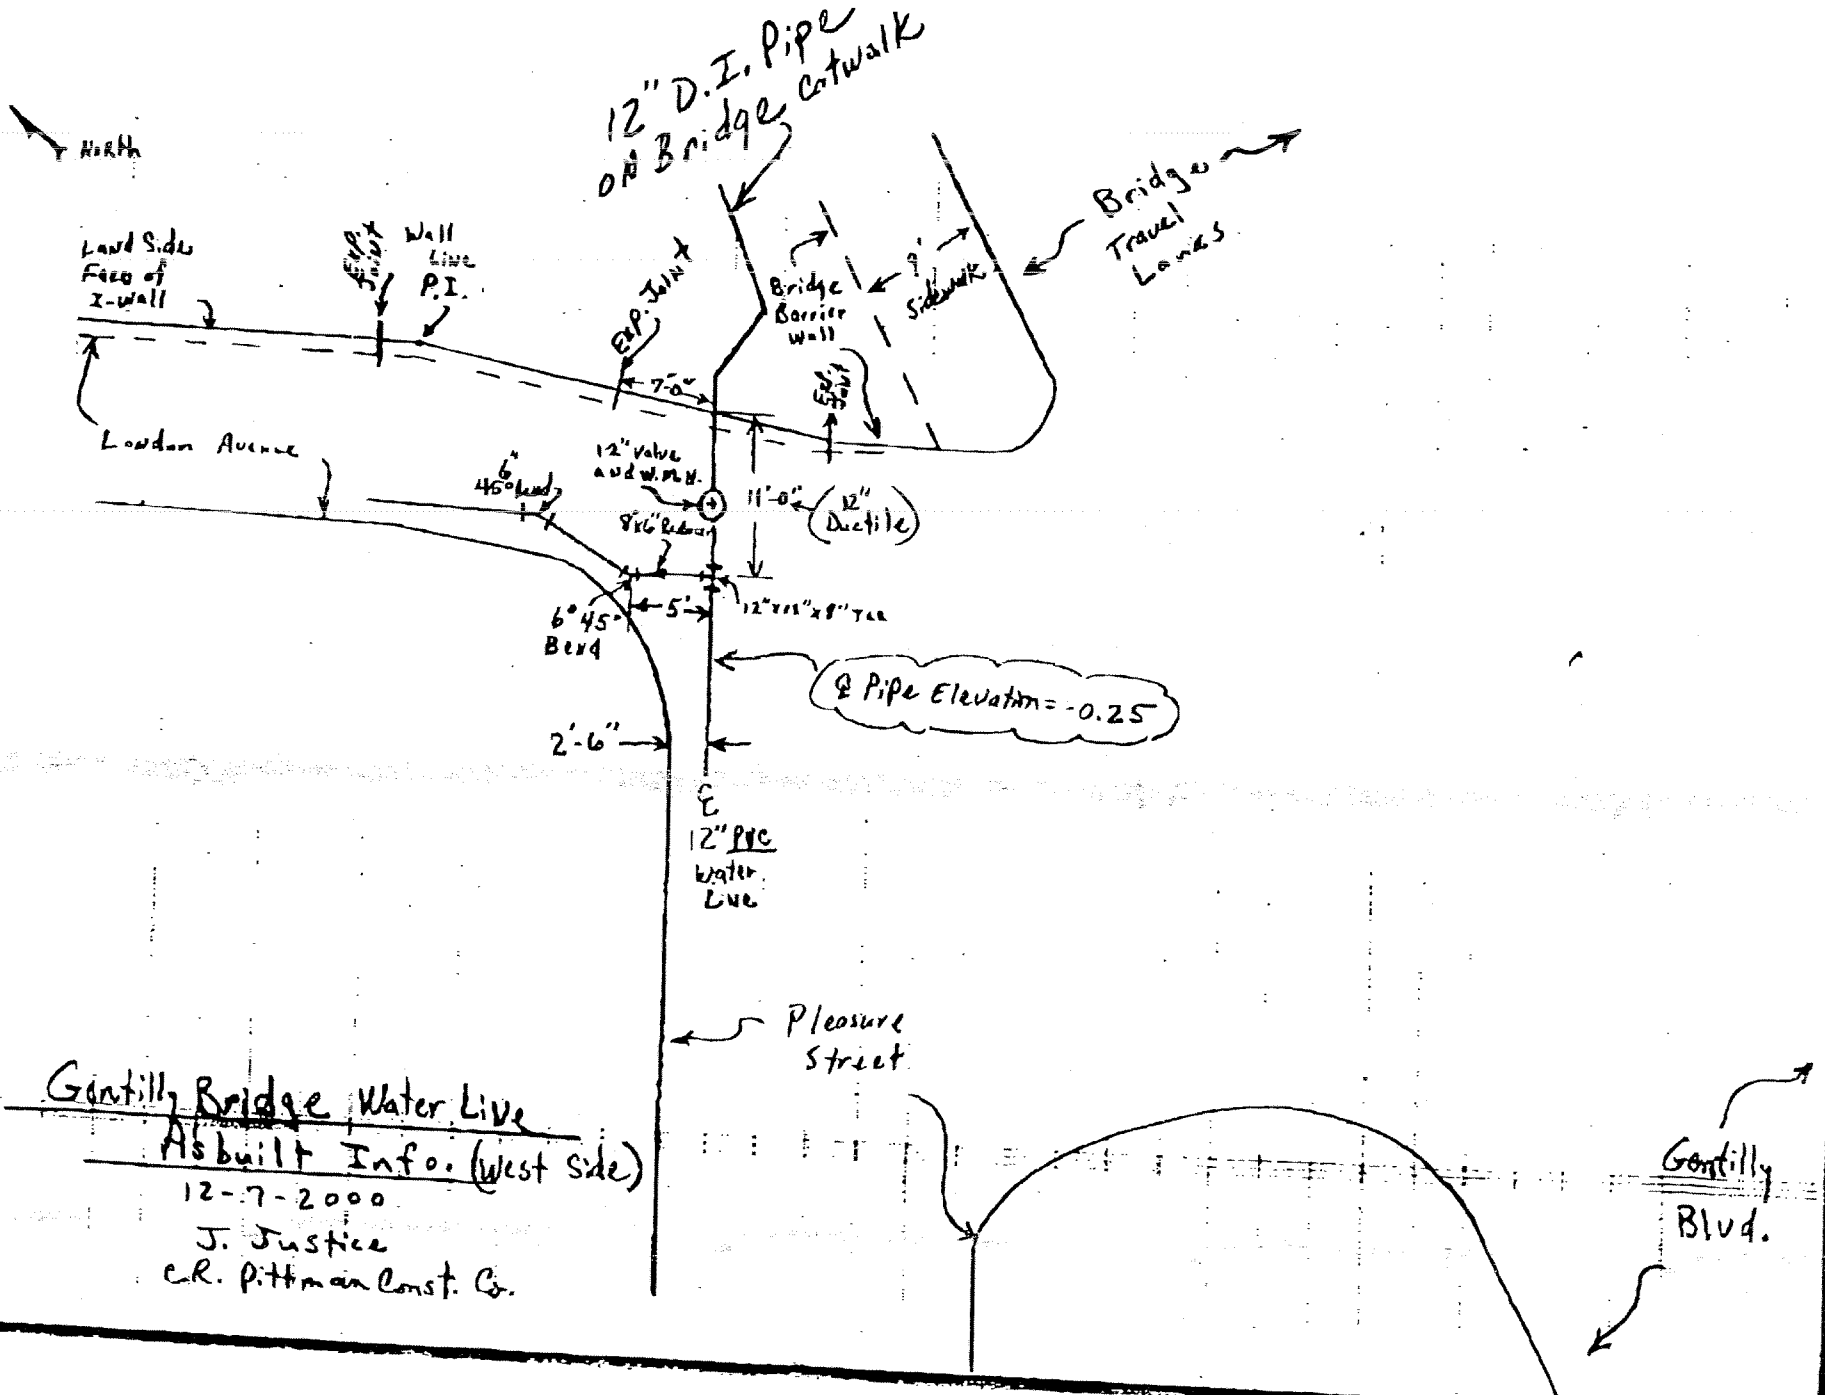 12" D.I. Pipe
on Bridge Catwalk
North
Bridge
Travel
Lanes
Land Side
Face of
I-Wall
Exp.
Joint
Wall
Line
P.I.
Exp. Joint
Bridge
Barrier
Wall
9'
Sidewalk
7'-0"
Exp.
Joint
London Avenue
12" Valve
and W.M.H.
6"
45° bend
11'-0"
(12"
Ductile)
8"x6" Reducer
6" 45°
Bend
5'
12"x12"x8" Tee
℄ Pipe Elevation = -0.25
2'-6"
℄
12" PVC
Water
Line
Pleasure
Street
Gentilly Bridge Water Line
Asbuilt Info. (West Side)
12-7-2000
J. Justice
C.R. Pittman Const. Co.
Gentilly
Blvd.